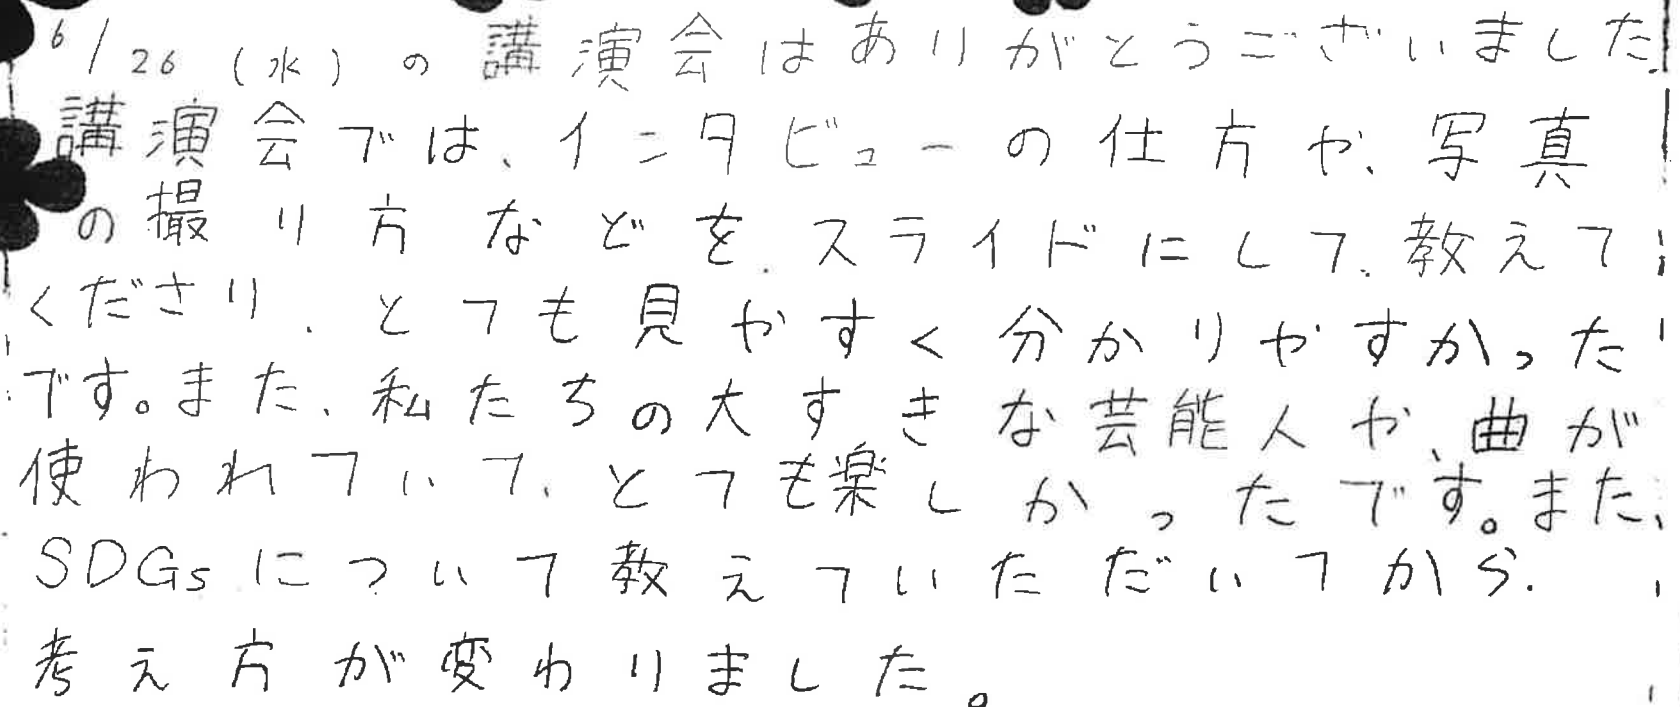 6/26(水)の講演会はありがとうございました。
講演会では、インタビューの仕方や、写真
の撮り方などを、スライドにして、教えて
くださり、とても見やすく分かりやすかった
です。また、私たちの大すきな芸能人や、曲が
使われていて、とても楽しかったです。また、
SDGsについて教えていただいてから、
考え方が変わりました。